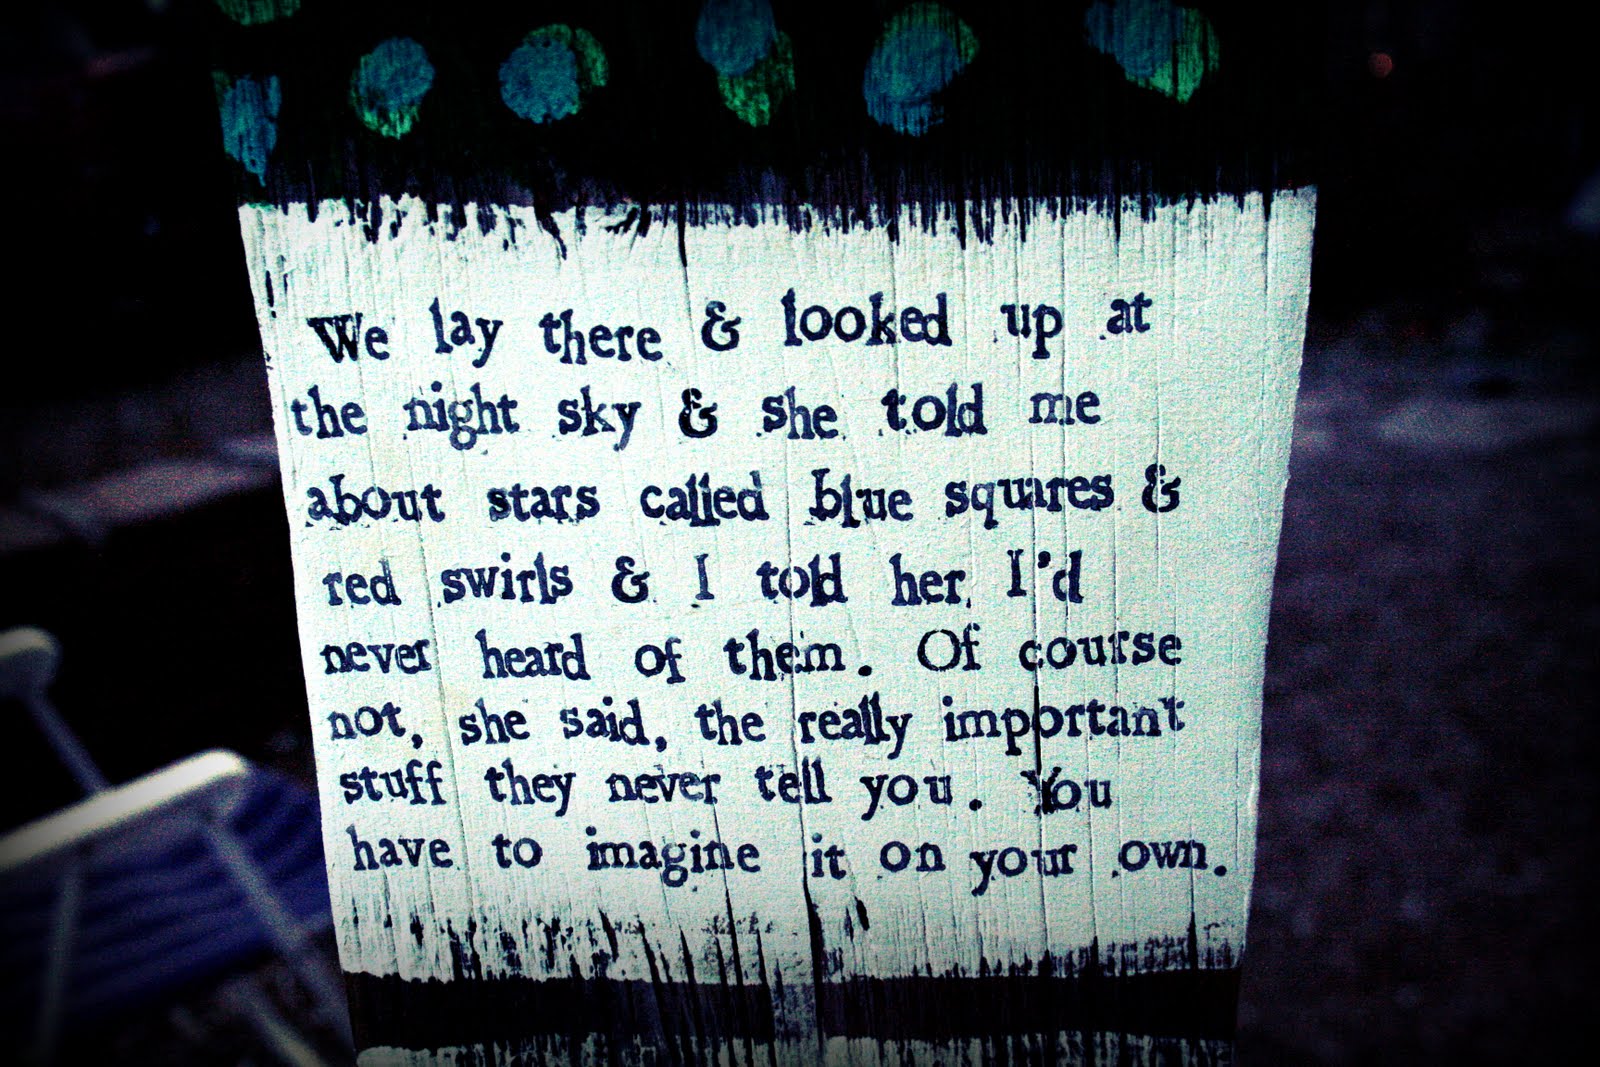 We lay there & looked up at
the night sky & she told me
about stars called blue squares &
red swirls & I told her I'd
never heard of them. Of course
not, she said, the really important
stuff they never tell you. You
have to imagine it on your own.